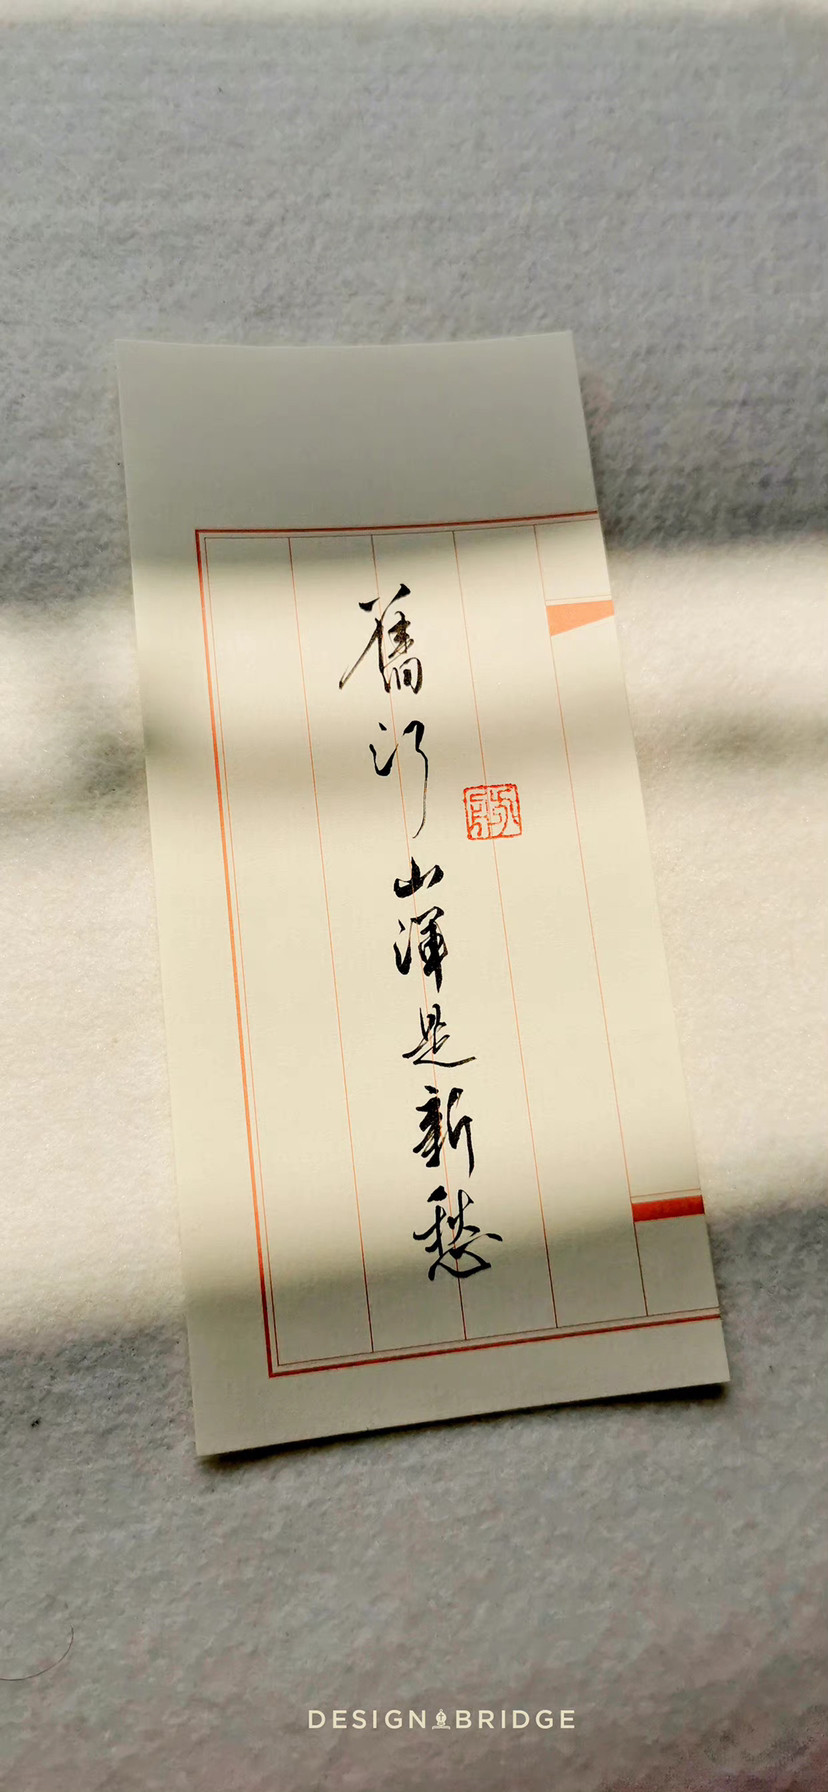 舊江山渾是新愁
DESIGN BRIDGE